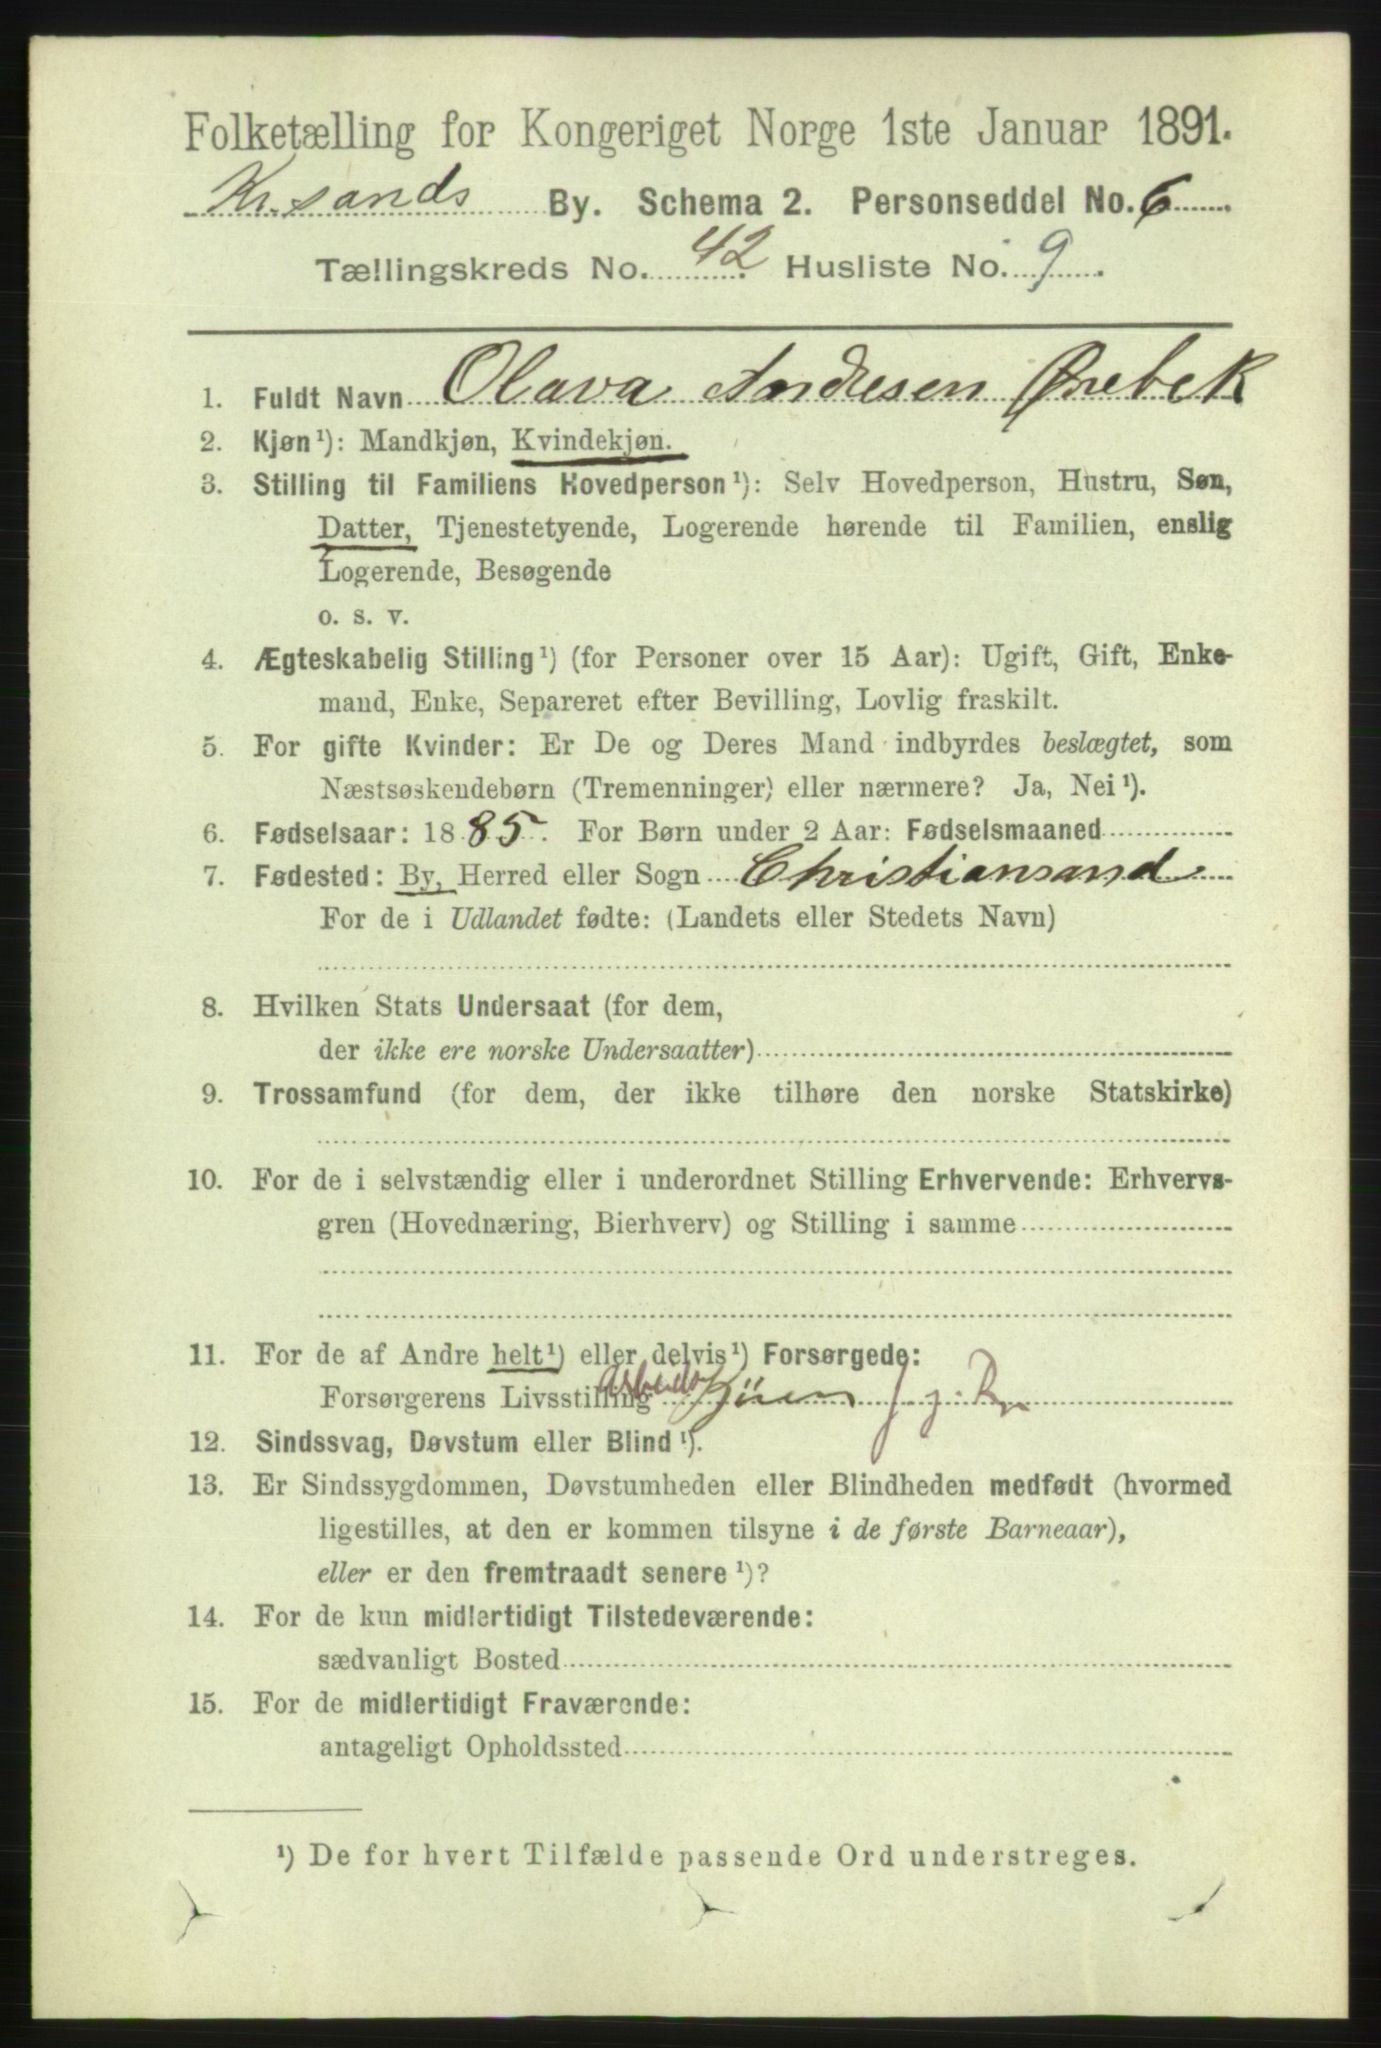 Folketælling for Kongeriget Norge 1ste Januar 1891.
Kr.sands By. Schema 2. Personseddel No. 6
Tællingskreds No. 42. Husliste No. 9
1. Fuldt Navn Olava Andresen Ørebek
2. Kjøn¹): Mandkjøn, Kvindekjøn.
3. Stilling til Familiens Hovedperson¹): Selv Hovedperson, Hustru, Søn,
Datter, Tjenestetyende, Logerende hørende til Familien, enslig
Logerende, Besøgende
o. s. v.
4. Ægteskabelig Stilling¹) (for Personer over 15 Aar): Ugift, Gift, Enke-
mand, Enke, Separeret efter Bevilling, Lovlig fraskilt.
5. For gifte Kvinder: Er De og Deres Mand indbyrdes beslægtet, som
Næstsøskendebørn (Tremenninger) eller nærmere? Ja, Nei¹).
6. Fødselsaar: 1885. For Børn under 2 Aar: Fødselsmaaned
7. Fødested: By, Herred eller Sogn Christiansand
For de i Udlandet fødte: (Landets eller Stedets Navn)
8. Hvilken Stats Undersaat (for dem,
der ikke ere norske Undersaatter)
9. Trossamfund (for dem, der ikke tilhøre den norske Statskirke)
10. For de i selvstændig eller i underordnet Stilling Erhvervende: Erhvervs-
gren (Hovednæring, Bierhverv) og Stilling i samme
11. For de af Andre helt¹) eller delvis¹) Forsørgede:
Forsørgerens Livsstilling
12. Sindssvag, Døvstum eller Blind¹).
13. Er Sindssygdommen, Døvstumheden eller Blindheden medfødt (hvormed
ligestilles, at den er kommen tilsyne i de første Barneaar),
eller er den fremtraadt senere¹)?
14. For de kun midlertidigt Tilstedeværende:
sædvanligt Bosted
15. For de midlertidigt Fraværende:
antageligt Opholdssted
¹) De for hvert Tilfælde passende Ord understreges.